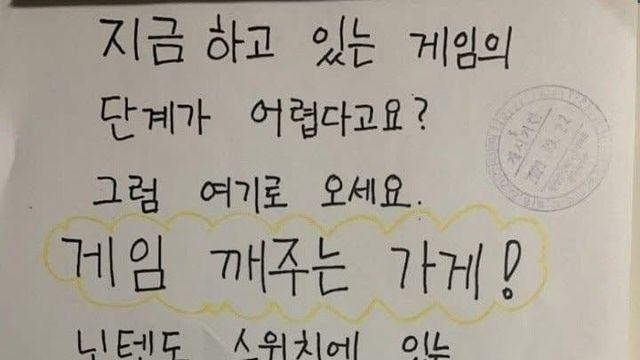 지금 하고 있는 게임의
단계가 어렵다고요?
그럼 여기로 오세요.
게임 깨주는 가게!
닌텐도 스위치에 있는
게시기한